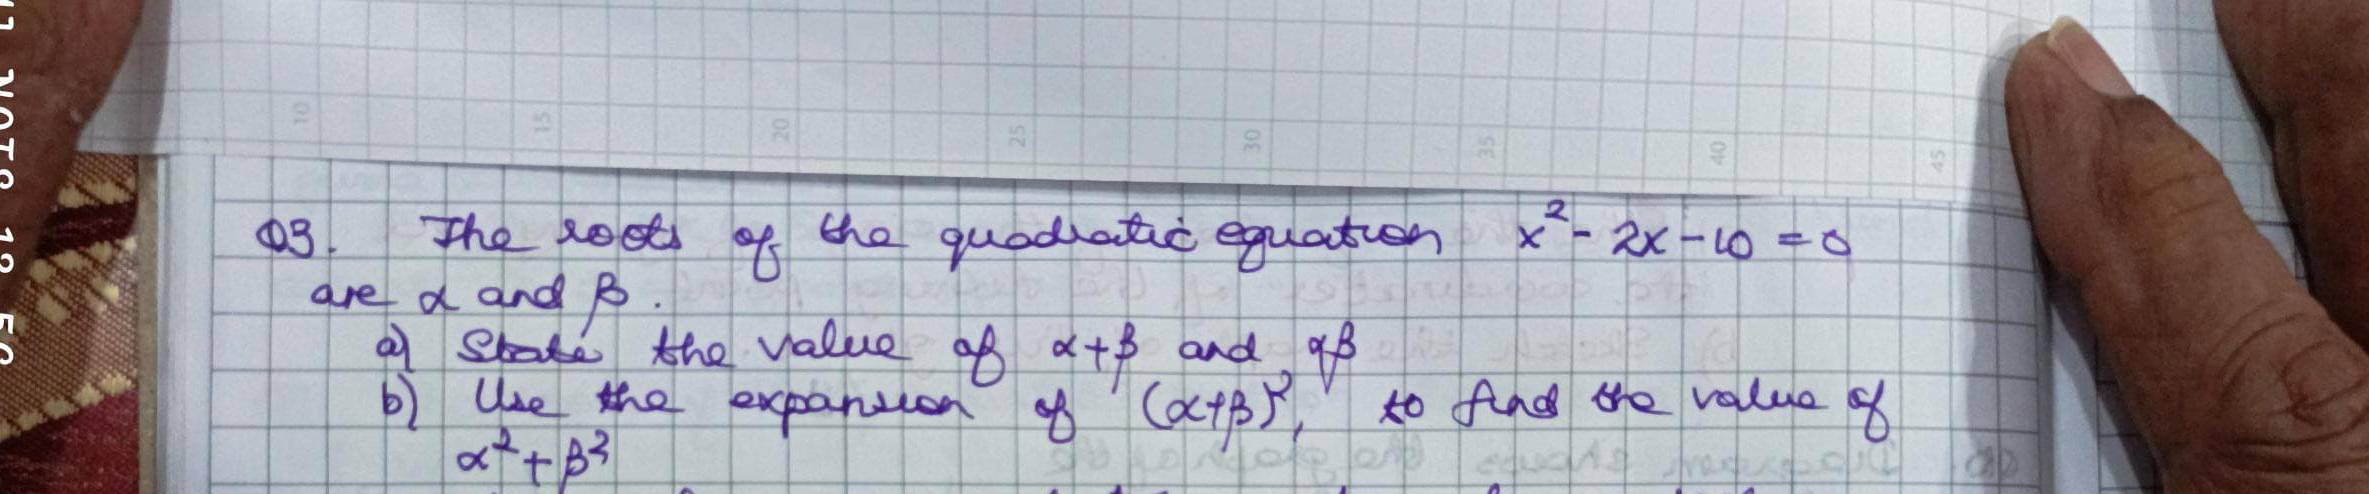 10 15 20 25 30 35 40 45
Q3. The roots of the quadratic equation x² - 2x - 10 = 0
are α and β.
a) State the value of α+β and αβ
b) Use the expansion of (α+β)², to find the value of
α² + β²